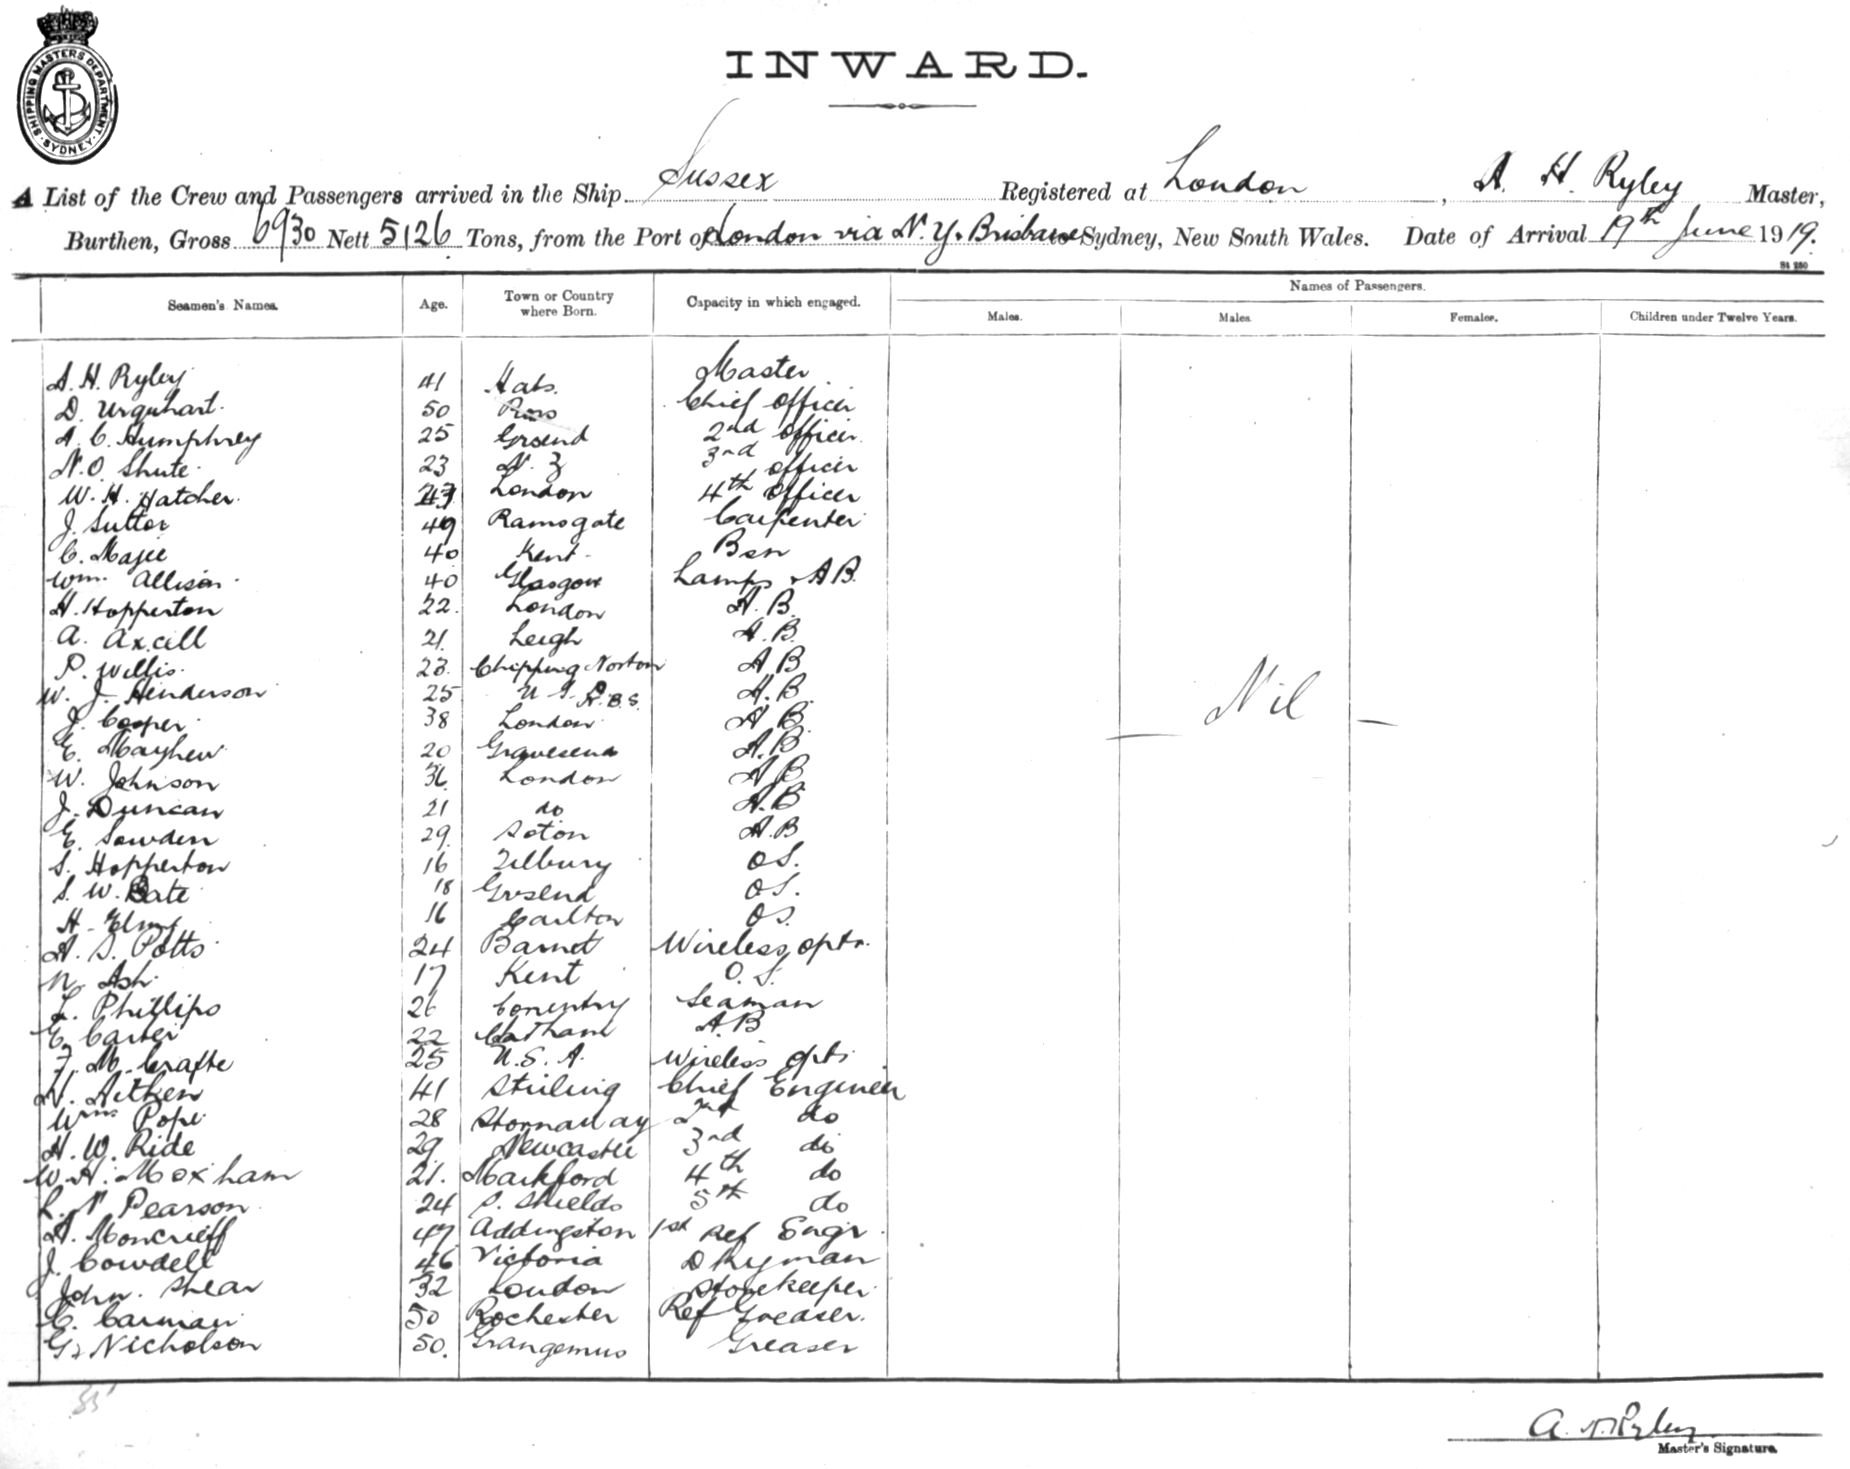 SHIPPING MASTERS DEPARTMENT
SYDNEY
INWARD.
A List of the Crew and Passengers arrived in the Ship Sussex Registered at London, A. H. Ryley Master,
Burthen, Gross 6930 Nett 5126 Tons, from the Port of London via N. Y. Brisbane Sydney, New South Wales. Date of Arrival 19th June 1919.
Names of Passengers.
Seamen's Names. Age. Town or Country where Born. Capacity in which engaged. Males. Males. Females. Children under Twelve Years.
A. H. Ryley 41 Master
D. Urquhart 50 Ross Chief Officer
A. C. Humphrey 25 Grsend 2nd Officer
N. O. Shute 23 N. Z 3rd Officer
W. H. Hatcher London 4th Officer
J. Sutton 49 Ramsgate Carpenter
C. Magee 40 Kent Bsn
Wm. Allison 40 Glasgow Lamps & A B.
H. Hopperton 22 London A. B.
A. Axcell 21 Leigh A. B.
P. Willis 23 Chipping Norton A B
W. J. Henderson 25 A. B.
J. Cooper 38 London A B
E. Mayhew 20 Gravesend A. B
W. Johnson 36 London A B
J. Duncan 21 do A. B
E. Sowden 29 Soton A. B
S. Hopperton 16 Tilbury OS.
S. W. Bate 18 Grsend OS.
H. Elms 16 Carlton OS.
A. S. Potts 24 Barnet Wireless optr.
N. Ash 17 Kent O. S.
L. Phillips 26 Coventry Seaman
E. Carter 22 Chatham A. B
F. M. Crafte 25 U. S. A. Wireless optr
Nil
A. Aitken 41 Stirling Chief Engineer
Wm Pope 28 Stornaway 2nd do
H. W. Ride 29 Newcastle 3rd do
W. H. Moxham 21. Markford 4th do
L. N. Pearson 24 S. Shields 5th do
A. Moncrieff 47 Addingston 1st Ref Engr.
J. Cowdell 46 Victoria Dkyman
John Shear 32 London Storekeeper
C. Carman 50 Rochester Ref Greaser.
G. Nicholson 50. Grangemus Greaser
35
A. H. Ryley
Master's Signature.